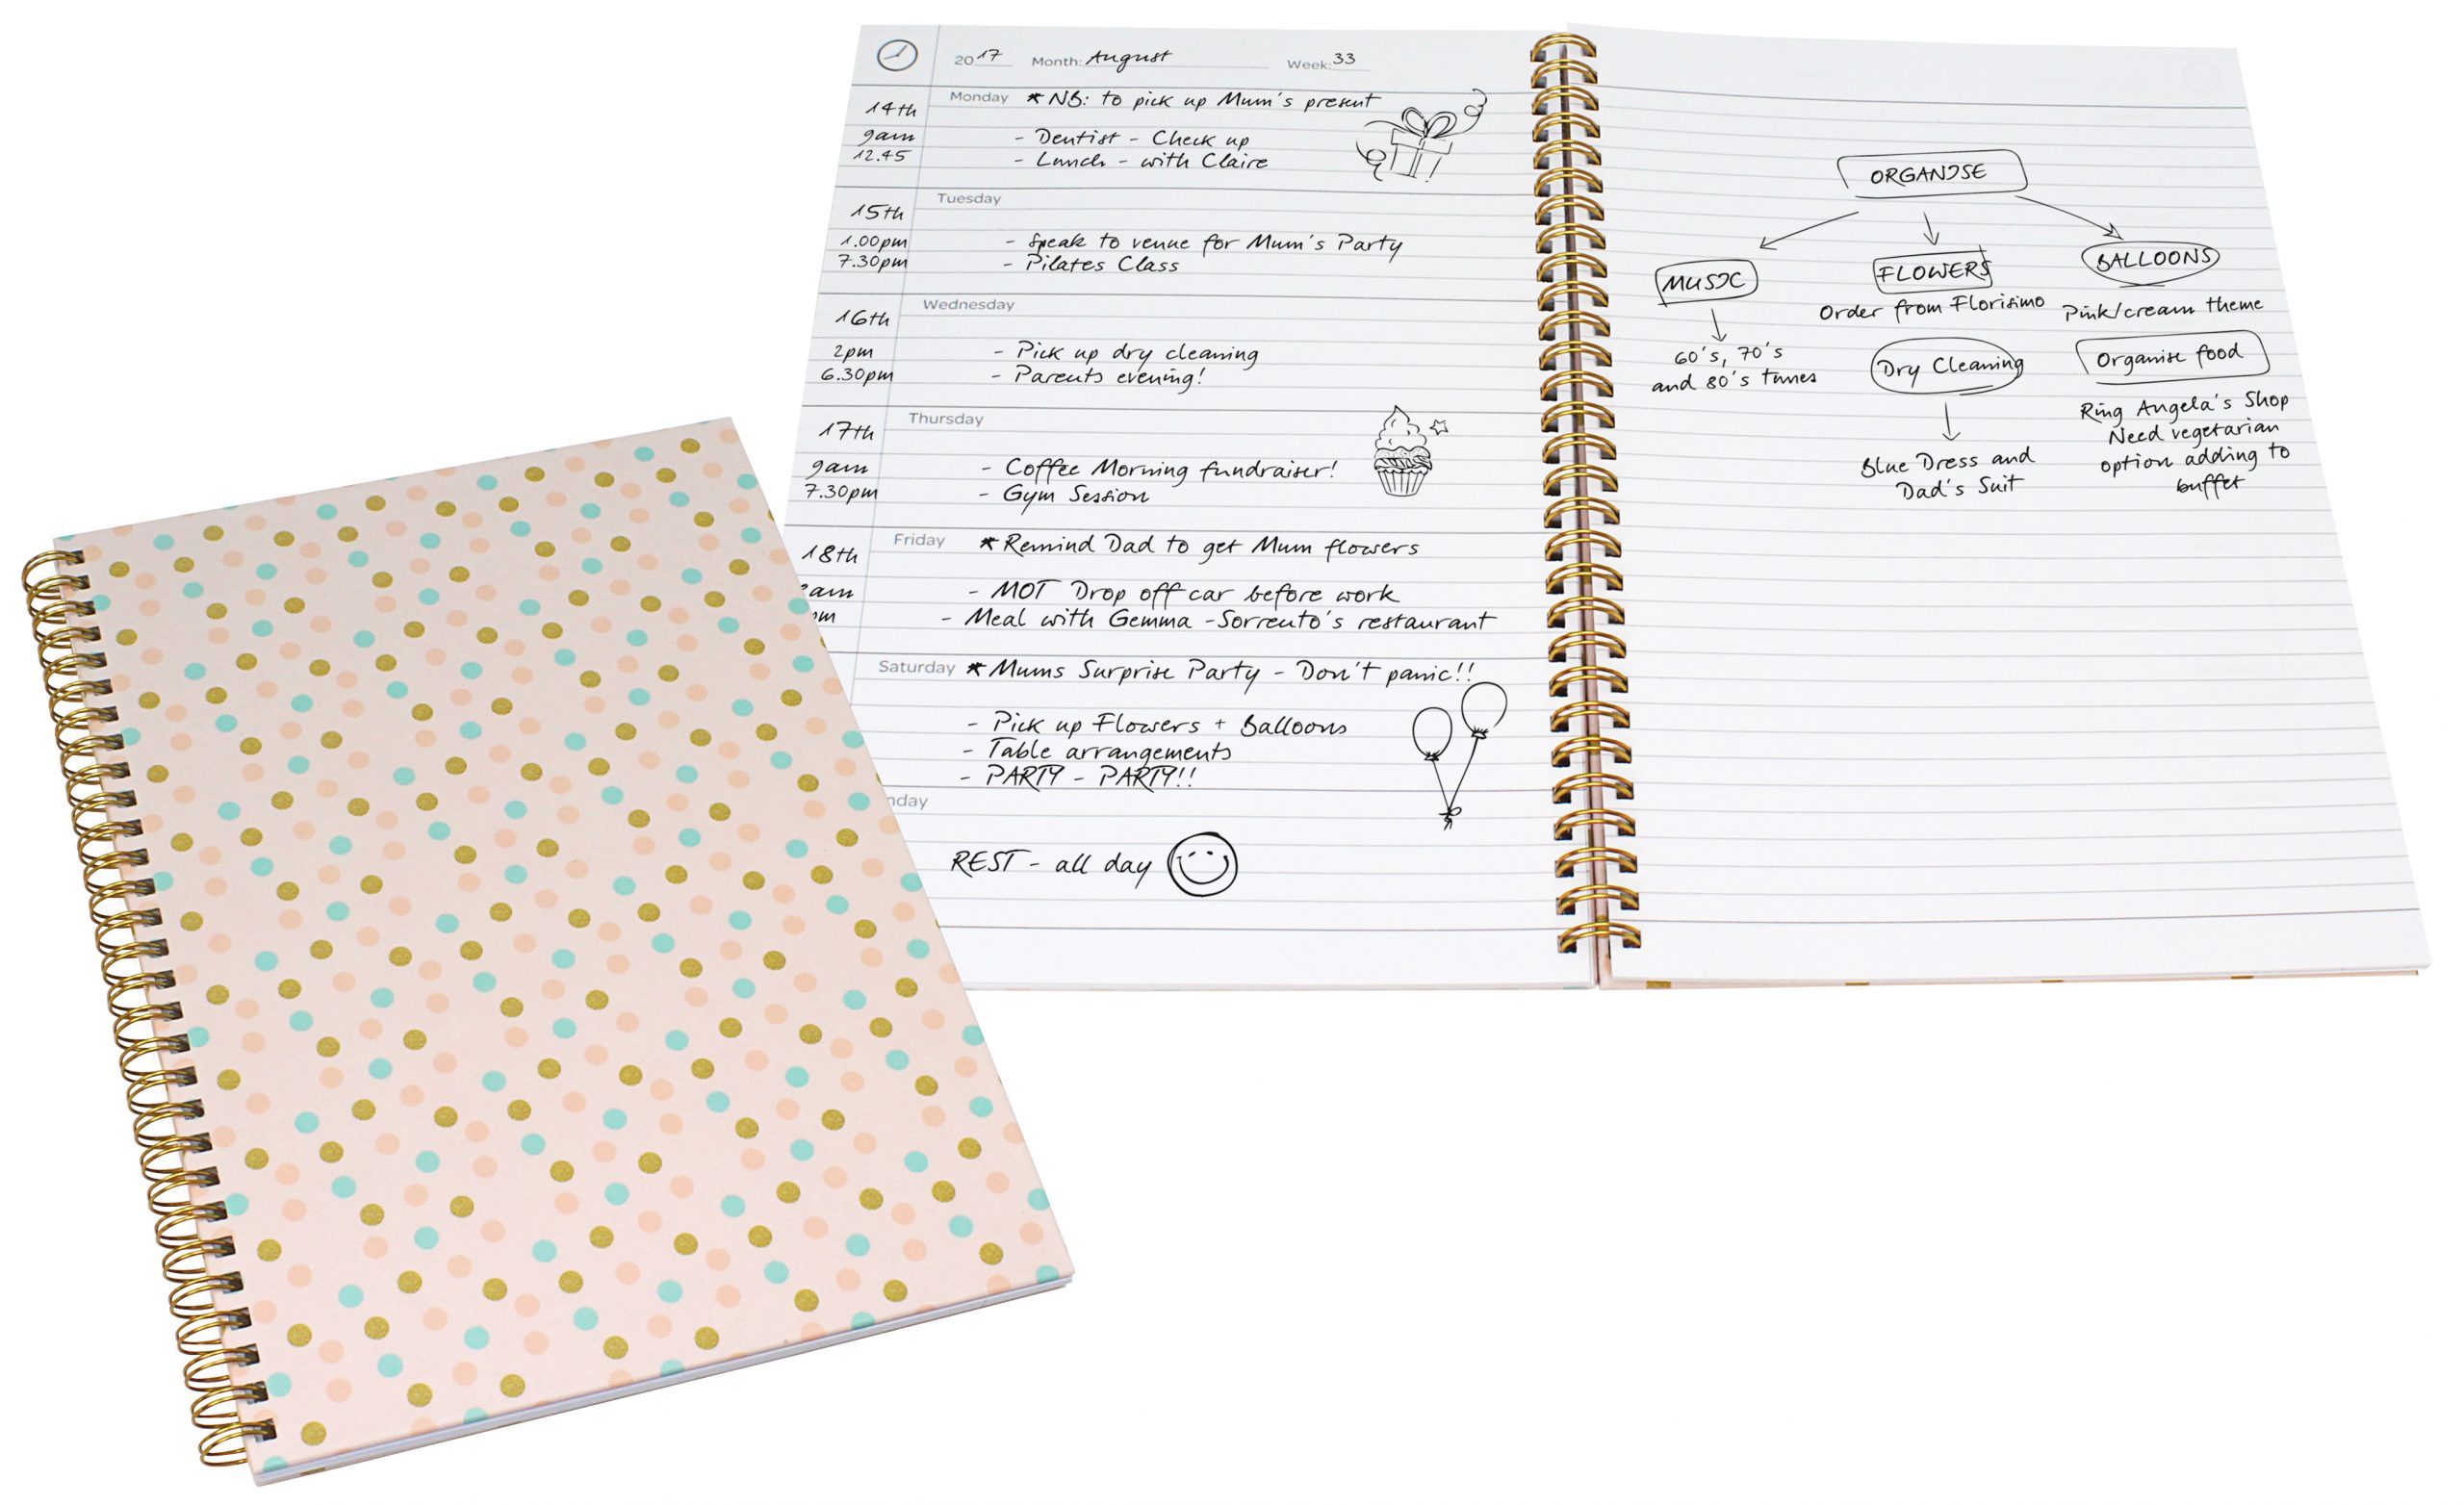 2017 Month: August Week: 33
Monday *NB: to pick up Mum's present
14th
9am - Dentist - Check up
12.45 - Lunch - with Claire
Tuesday
15th
1.00pm - Speak to venue for Mum's Party
7.30pm - Pilates Class
Wednesday
16th
2pm - Pick up dry cleaning
6.30pm - Parents evening!
Thursday
17th
9am - Coffee Morning fundraiser!
7.30pm - Gym Session
Friday *Remind Dad to get Mum flowers
18th
am - MOT Drop off car before work
pm - Meal with Gemma - Sorrento's restaurant
Saturday *Mums Surprise Party - Don't panic!!
- Pick up Flowers + Balloons
- Table arrangements
- PARTY - PARTY!!
nday
REST - all day
ORGANISE
MUSIC
60's, 70's
and 80's tunes
FLOWERS
Order from Florisimo
Dry Cleaning
Blue Dress and
Dad's Suit
BALLOONS
Pink/cream theme
Organise food
Ring Angela's Shop
Need vegetarian
option adding to
buffet